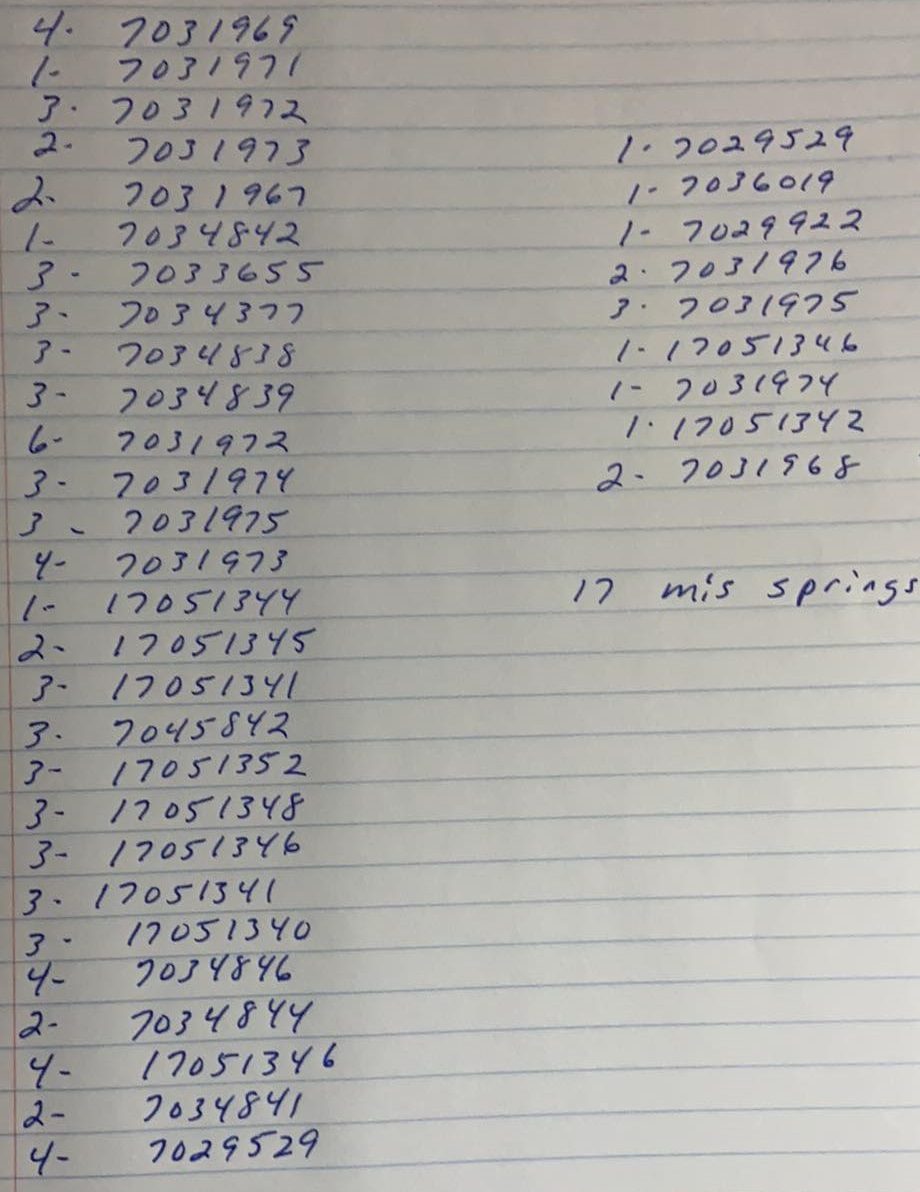 4. 7031969
1- 7031971
3. 7031972
2. 7031973
2- 7031967
1- 7034842
3- 7033655
3- 7034377
3- 7034838
3- 7034839
6- 7031972
3- 7031974
3- 7031975
4- 7031973
1- 17051344
2- 17051345
3- 17051341
3. 7045842
3- 17051352
3- 17051348
3- 17051346
3. 17051341
3- 17051340
4- 7034846
2- 7034844
4- 17051346
2- 7034841
4- 7029529
1. 7029529
1- 7036019
1- 7029922
2. 7031976
3. 7031975
1- 17051346
1- 7031974
1. 17051342
2- 7031968
17 mis springs